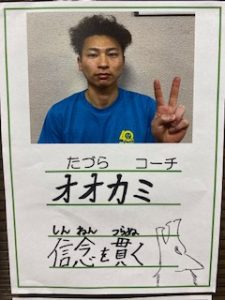 たづら コーチ
オオカミ
しん ねん つらぬ
信念を貫く